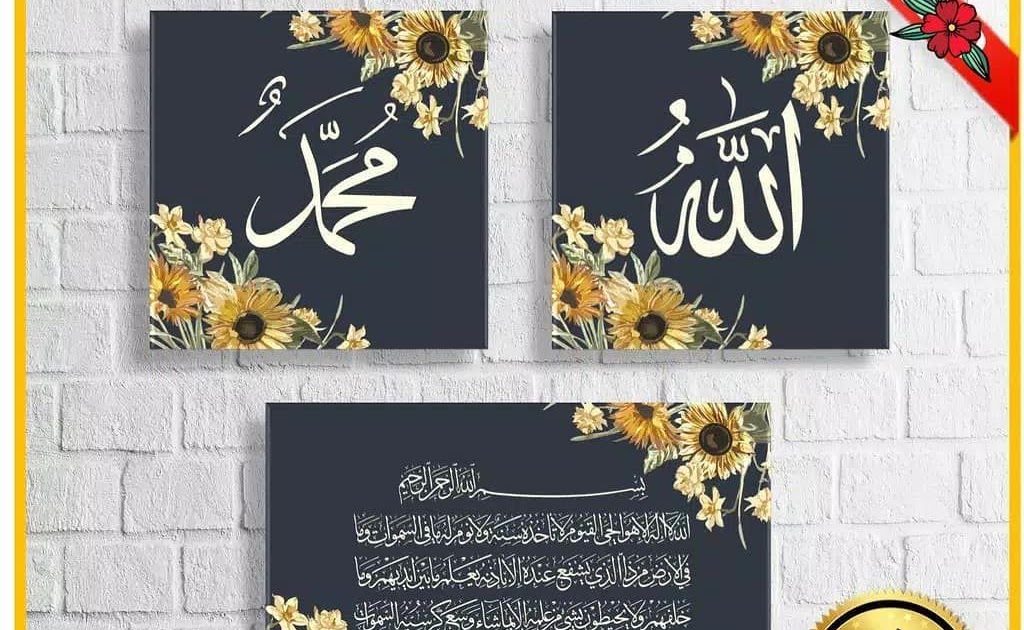 اللهُ
مُحَمَّدٌ
بسم الله الرحمن الرحيم
الله لا اله الا هو الحي القيوم لا تأخذه سنة ولا نوم له ما في السموات وما
في الارض من ذا الذي يشفع عنده الا باذنه يعلم ما بين ايديهم وما
خلفهم ولا يحيطون بشيء من علمه الا بما شاء وسع كرسيه السموات